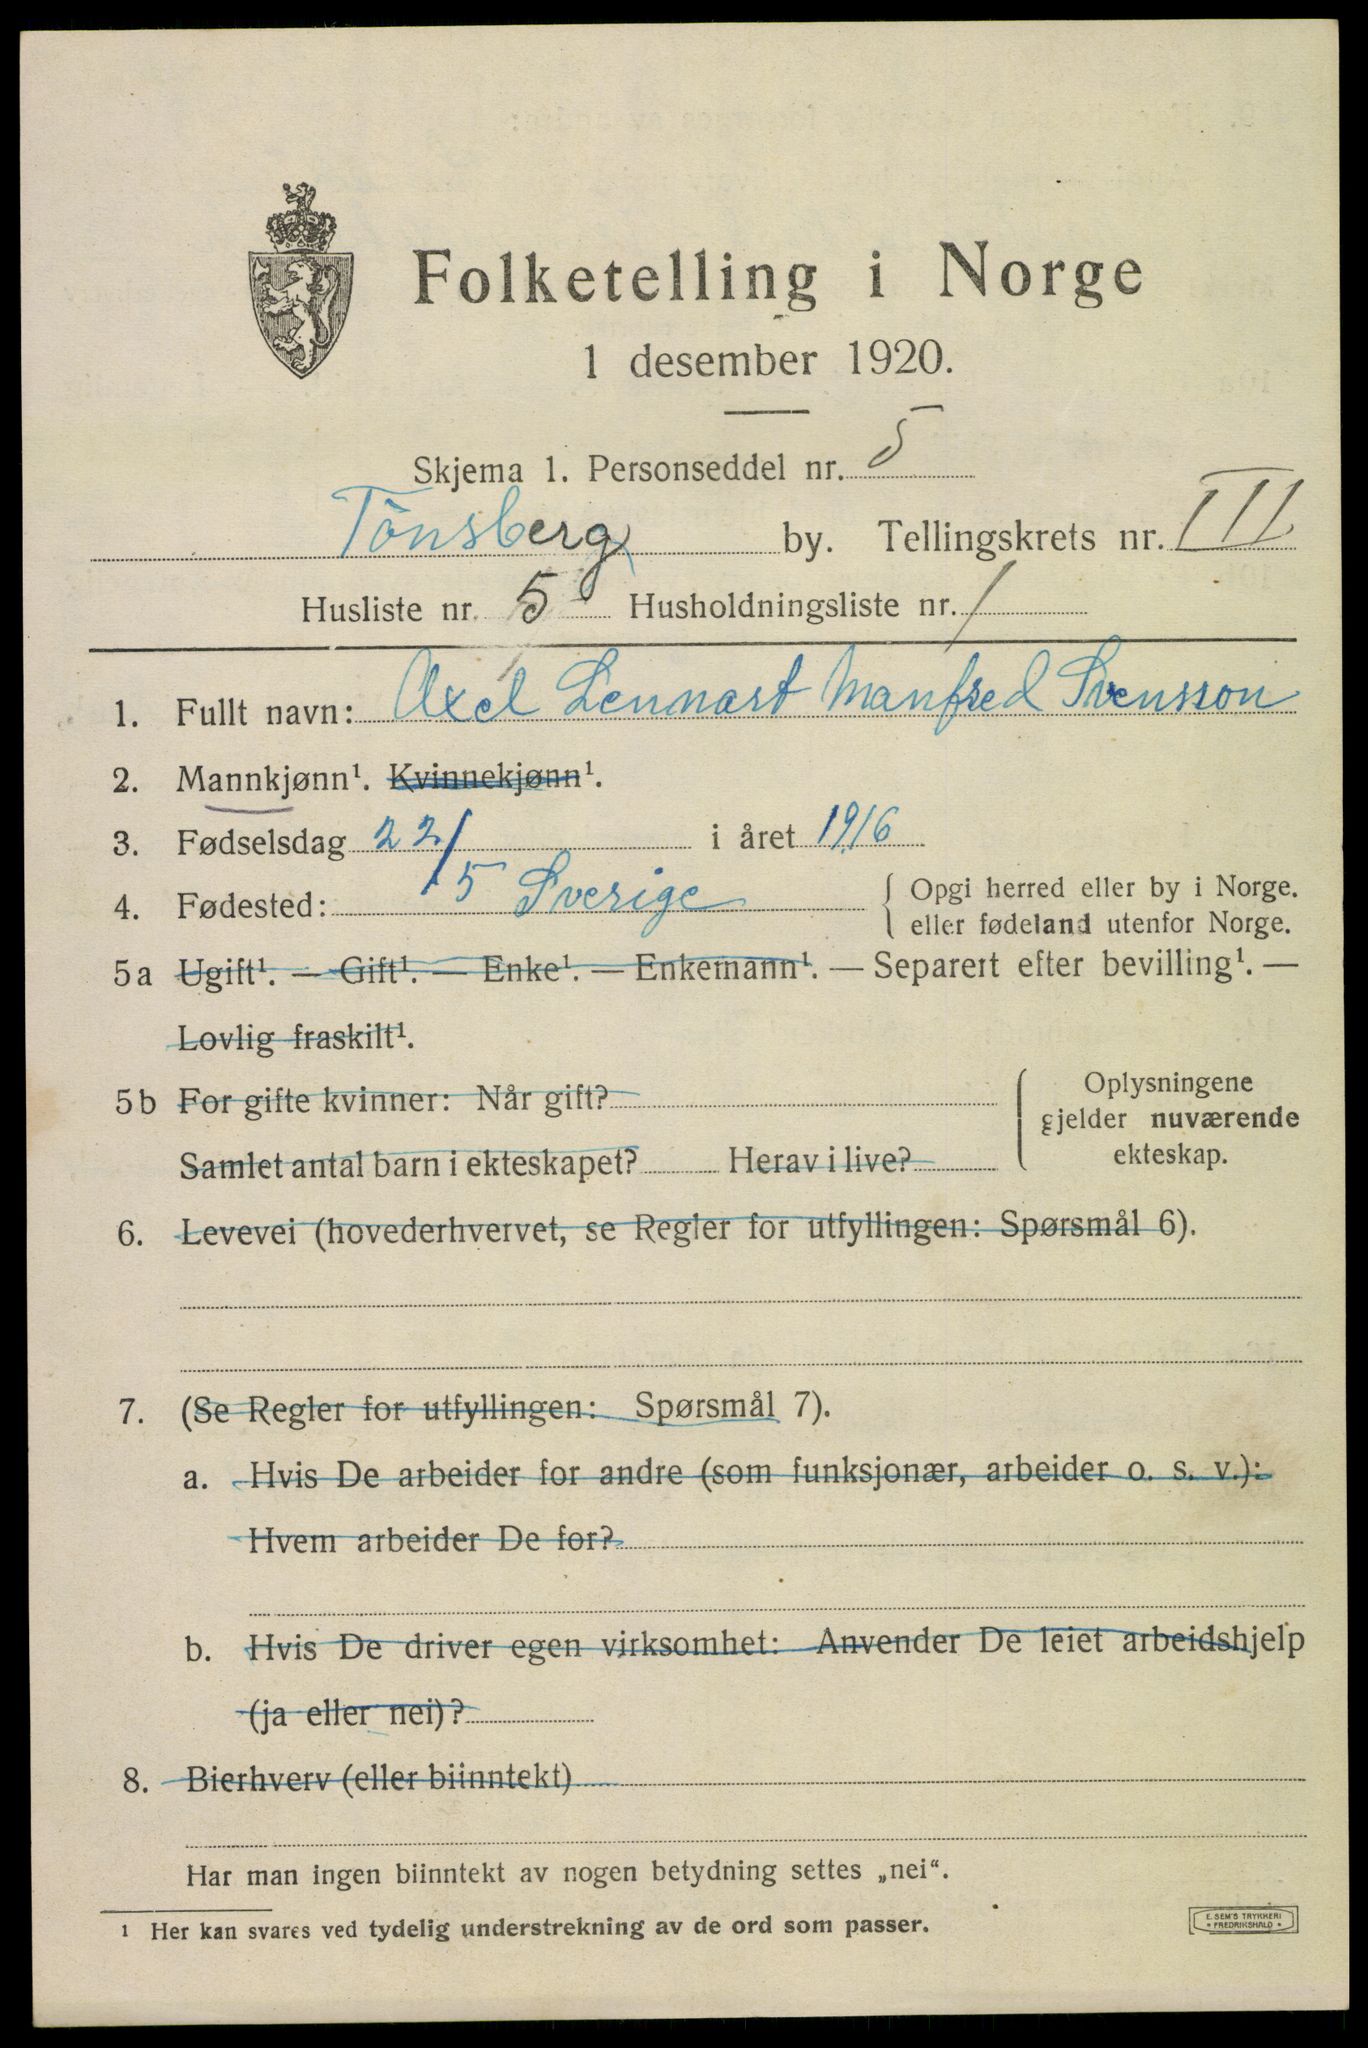 Folketelling i Norge
1 desember 1920.
Skjema 1. Personseddel nr. 5
Tönsberg by. Tellingskrets nr. III
Husliste nr. 5 Husholdningsliste nr. 1
1. Fullt navn: Axel Lennart Manfred Svensson
2. Mannkjønn¹. Kvinnekjønn¹.
3. Fødselsdag 22/5 i året 1916
4. Fødested: Sverige { Opgi herred eller by i Norge.
eller fødeland utenfor Norge.
5a Ugift¹. — Gift¹. — Enke¹. — Enkemann¹. — Separert efter bevilling¹. —
Lovlig fraskilt¹.
5b For gifte kvinner: Når gift?
Samlet antal barn i ekteskapet? Herav i live?
Oplysningene
gjelder nuværende
ekteskap.
6. Levevei (hovederhvervet, se Regler for utfyllingen: Spørsmål 6).
7. (Se Regler for utfyllingen: Spørsmål 7).
a. Hvis De arbeider for andre (som funksjonær, arbeider o. s. v.):
Hvem arbeider De for?
b. Hvis De driver egen virksomhet: Anvender De leiet arbeidshjelp
(ja eller nei)?
8. Bierhverv (eller biinntekt)
Har man ingen biinntekt av nogen betydning settes „nei“.
¹ Her kan svares ved tydelig understrekning av de ord som passer.
E. SEM'S TRYKKERI
* FREDRIKSHALD *